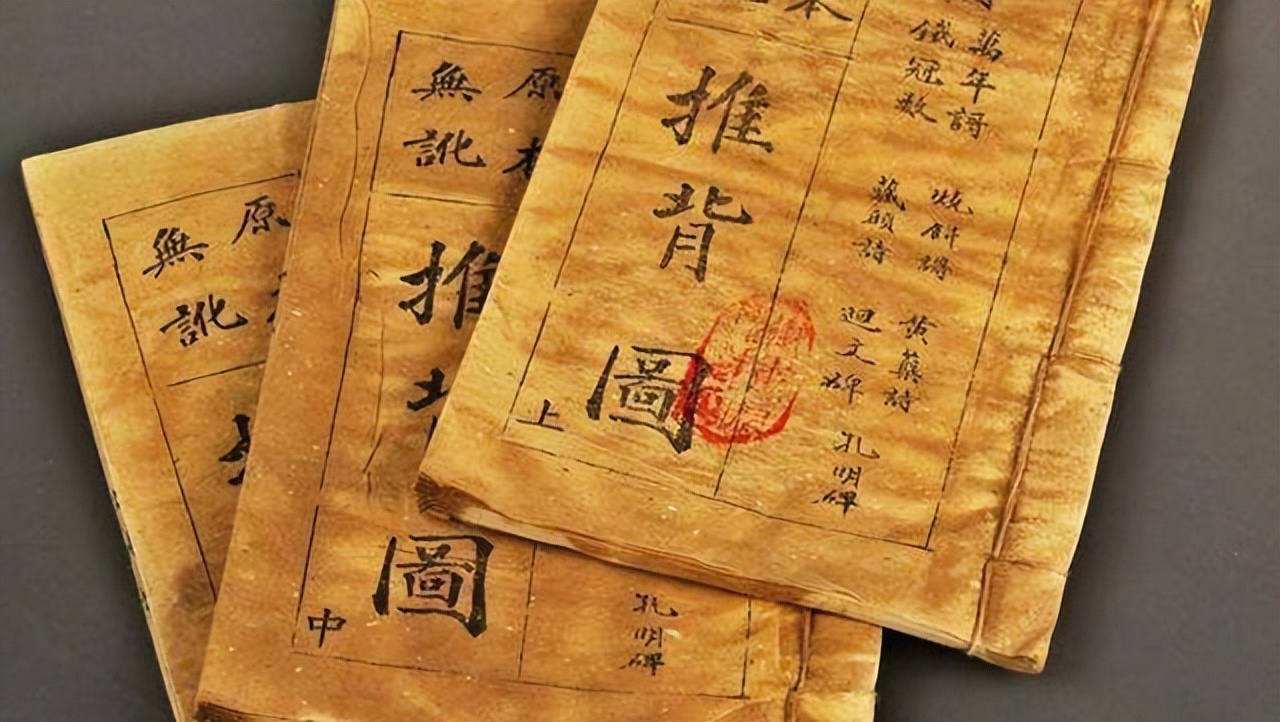 本
推背圖
上
萬年謌
鐵冠數
燒餅謌
藏頭詩
黃蘗詩
迴文碑
孔明碑
原本
無訛
推
圖
中
孔明碑
原
無訛